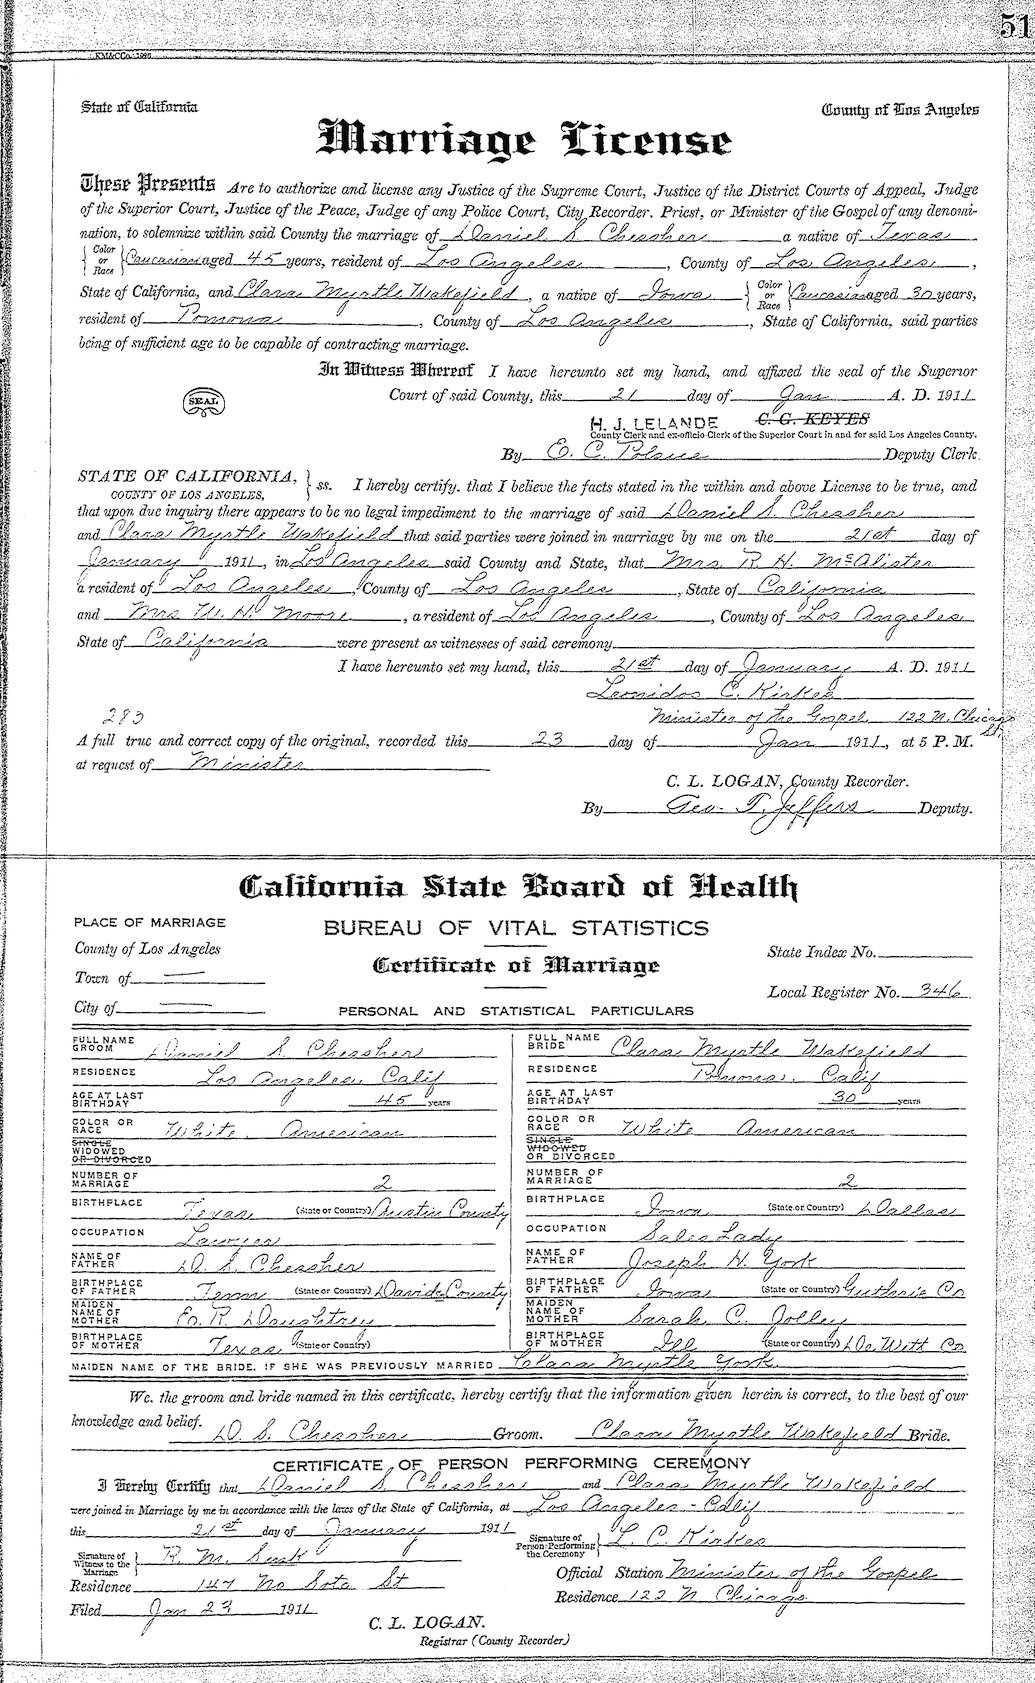 51
KM&CCo.-1896
State of California County of Los Angeles
Marriage License
These Presents Are to authorize and license any Justice of the Supreme Court, Justice of the District Courts of Appeal, Judge
of the Superior Court, Justice of the Peace, Judge of any Police Court, City Recorder, Priest, or Minister of the Gospel of any denomi-
nation, to solemnize within said County the marriage of Daniel S. Chessher a native of Texas
Color or Race Caucasian aged 45 years, resident of Los Angeles, County of Los Angeles,
State of California, and Clara Myrtle Wakefield, a native of Iowa Color or Race Caucasian aged 30 years,
resident of Pomona, County of Los Angeles, State of California, said parties
being of sufficient age to be capable of contracting marriage.
In Witness Whereof I have hereunto set my hand, and affixed the seal of the Superior
SEAL Court of said County, this 21 day of Jan A. D. 1911
H. J. LELANDE C. G. KEYES
County Clerk and ex-officio Clerk of the Superior Court in and for said Los Angeles County.
By E. C. Deputy Clerk.
STATE OF CALIFORNIA, ss. I hereby certify, that I believe the facts stated in the within and above License to be true, and
COUNTY OF LOS ANGELES,
that upon due inquiry there appears to be no legal impediment to the marriage of said Daniel S. Chessher
and Clara Myrtle Wakefield that said parties were joined in marriage by me on the 21st day of
January 1911, in Los Angeles said County and State, that Mrs R H McAlister
a resident of Los Angeles, County of Los Angeles, State of California
and Mrs W. H. Moore, a resident of Los Angeles, County of Los Angeles
State of California were present as witnesses of said ceremony.
I have hereunto set my hand, this 21st day of January A. D. 1911
Leonidos C. Kirkes
283 Minister of the Gospel 122 N. Chicago St.
A full true and correct copy of the original, recorded this 23 day of Jan 1911, at 5 P. M.
at request of Minister
C. L. LOGAN, County Recorder.
By Geo. T. Jeffers Deputy.
California State Board of Health
PLACE OF MARRIAGE BUREAU OF VITAL STATISTICS
County of Los Angeles State Index No.
Town of Certificate of Marriage
Local Register No. 346
City of PERSONAL AND STATISTICAL PARTICULARS
FULL NAME GROOM Daniel S Chessher FULL NAME BRIDE Clara Myrtle Wakefield
RESIDENCE Los Angeles, Calif RESIDENCE Pomona, Calif
AGE AT LAST BIRTHDAY 45 years AGE AT LAST BIRTHDAY 30 years
COLOR OR RACE White American COLOR OR RACE White American
SINGLE WIDOWED OR DIVORCED SINGLE WIDOWED OR DIVORCED
NUMBER OF MARRIAGE 2 NUMBER OF MARRIAGE 2
BIRTHPLACE Texas (State or Country) Austin County BIRTHPLACE Iowa (State or Country) Dallas
OCCUPATION Lawyer OCCUPATION Sales Lady
NAME OF FATHER D. S. Chessher NAME OF FATHER Joseph H. York
BIRTHPLACE OF FATHER Tenn (State or Country) Davids County BIRTHPLACE OF FATHER Iowa (State or Country) Guthrie Co
MAIDEN NAME OF MOTHER E. R. Daughtrey MAIDEN NAME OF MOTHER Sarah C. Jolley
BIRTHPLACE OF MOTHER Texas (State or Country) BIRTHPLACE OF MOTHER Ill (State or Country) De Witt Co
MAIDEN NAME OF THE BRIDE, IF SHE WAS PREVIOUSLY MARRIED Clara Myrtle York
We, the groom and bride named in this certificate, hereby certify that the information given herein is correct, to the best of our
knowledge and belief.
D. S. Chessher Groom. Clara Myrtle Wakefield Bride.
CERTIFICATE OF PERSON PERFORMING CEREMONY
I Hereby Certify that Daniel S Chessher and Clara Myrtle Wakefield
were joined in Marriage by me in accordance with the laws of the State of California, at Los Angeles - Calif
this 21st day of January 1911 Signature of Person Performing the Ceremony L. C. Kirkes
Signature of Witness to the Marriage R. M.
Official Station Minister of the Gospel
Residence 147 No Soto St Residence 122 N Chicago
Filed Jan 23 1911
C. L. LOGAN.
Registrar (County Recorder)